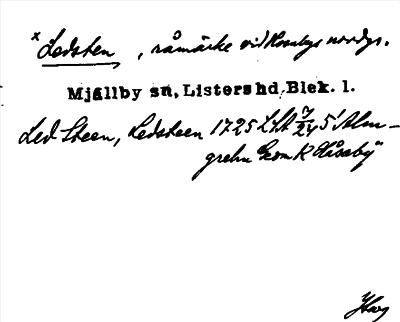 x Ledsten, råmärke vid Hosabys nordgr.
Mjällby sn, Listers hd, Blek. l.
Led Steen, Ledsteen 1725 LSA 7/24 5¹ Alm-
grehn Geom K Håsaby